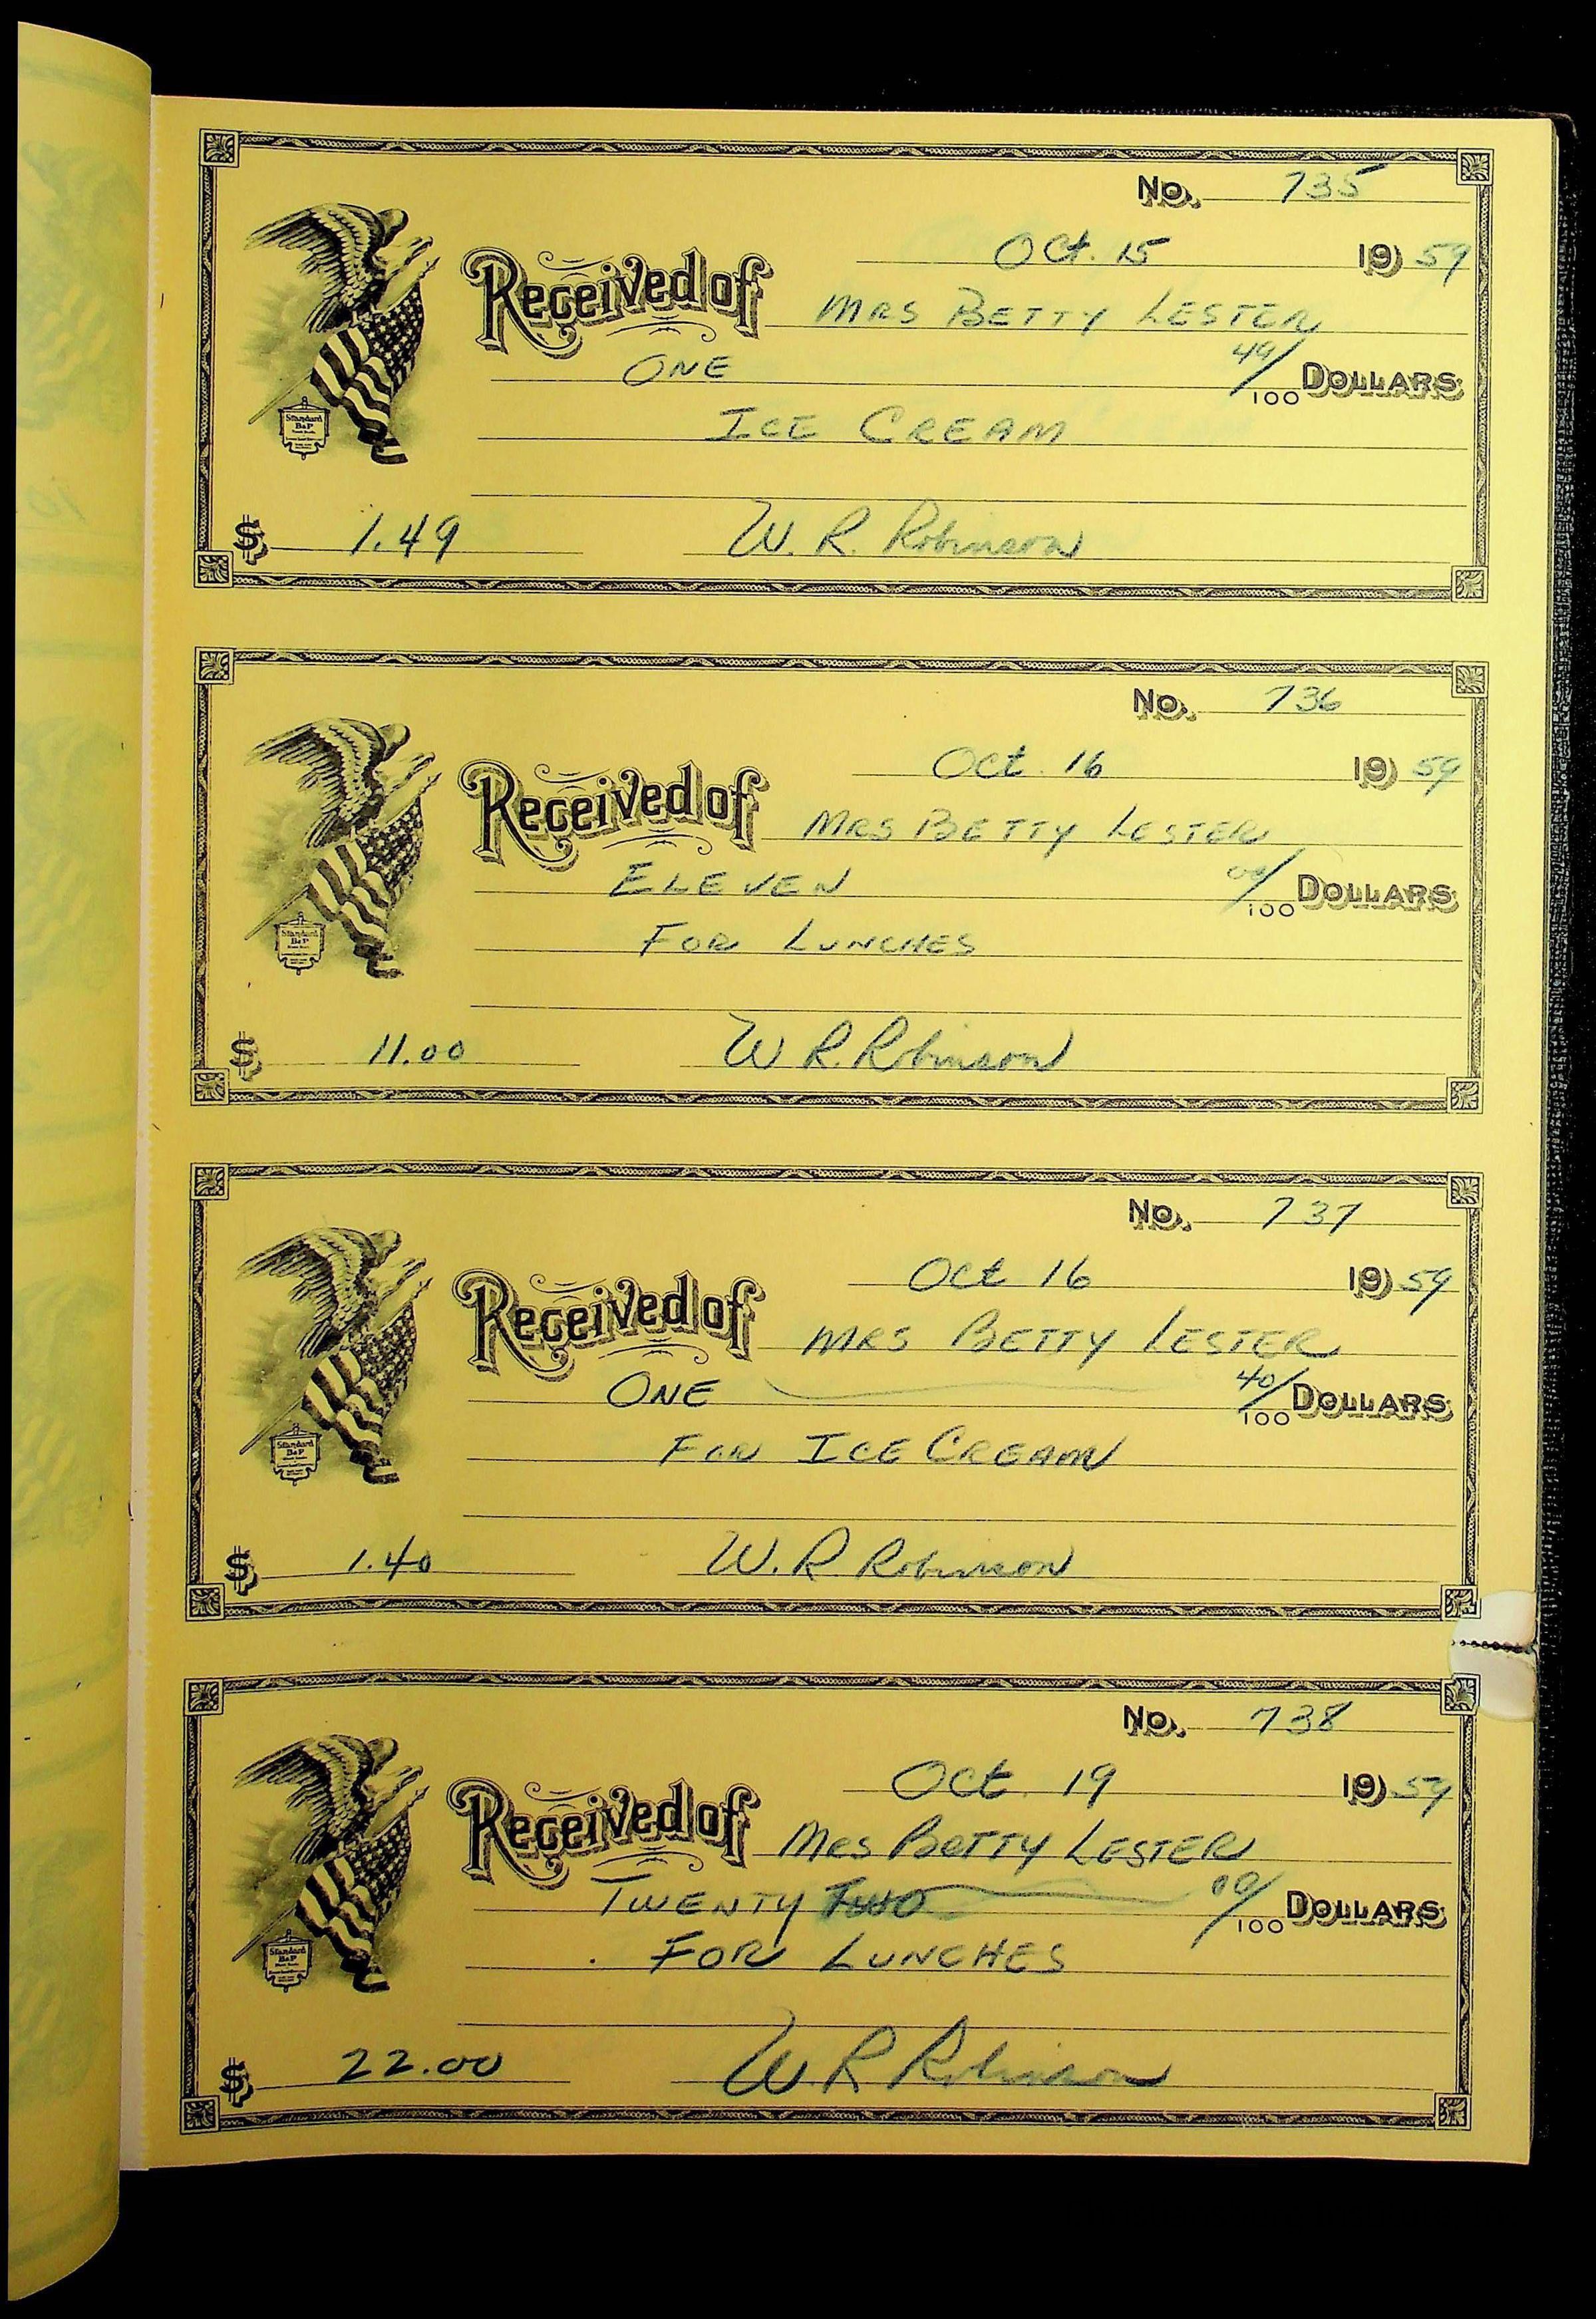 No. 735
Oct. 15 19 59
Received of MRS BETTY LESTER
ONE 49/100 DOLLARS
ICE CREAM
Standard
B&P
$ 1.49 W. R. Robinson
No. 736
Oct. 16 19 59
Received of MRS BETTY LESTER
ELEVEN 00/100 DOLLARS
FOR LUNCHES
Standard
B&P
$ 11.00 W R. Robinson
No. 737
Oct 16 19 59
Received of MRS BETTY LESTER
ONE 40/100 DOLLARS
FOR ICE CREAM
Standard
B&P
$ 1.40 W. R Robinson
No. 738
Oct. 19 19 59
Received of MRS BETTY LESTER
TWENTY TWO 00/100 DOLLARS
FOR LUNCHES
Standard
B&P
$ 22.00 W. R Robinson